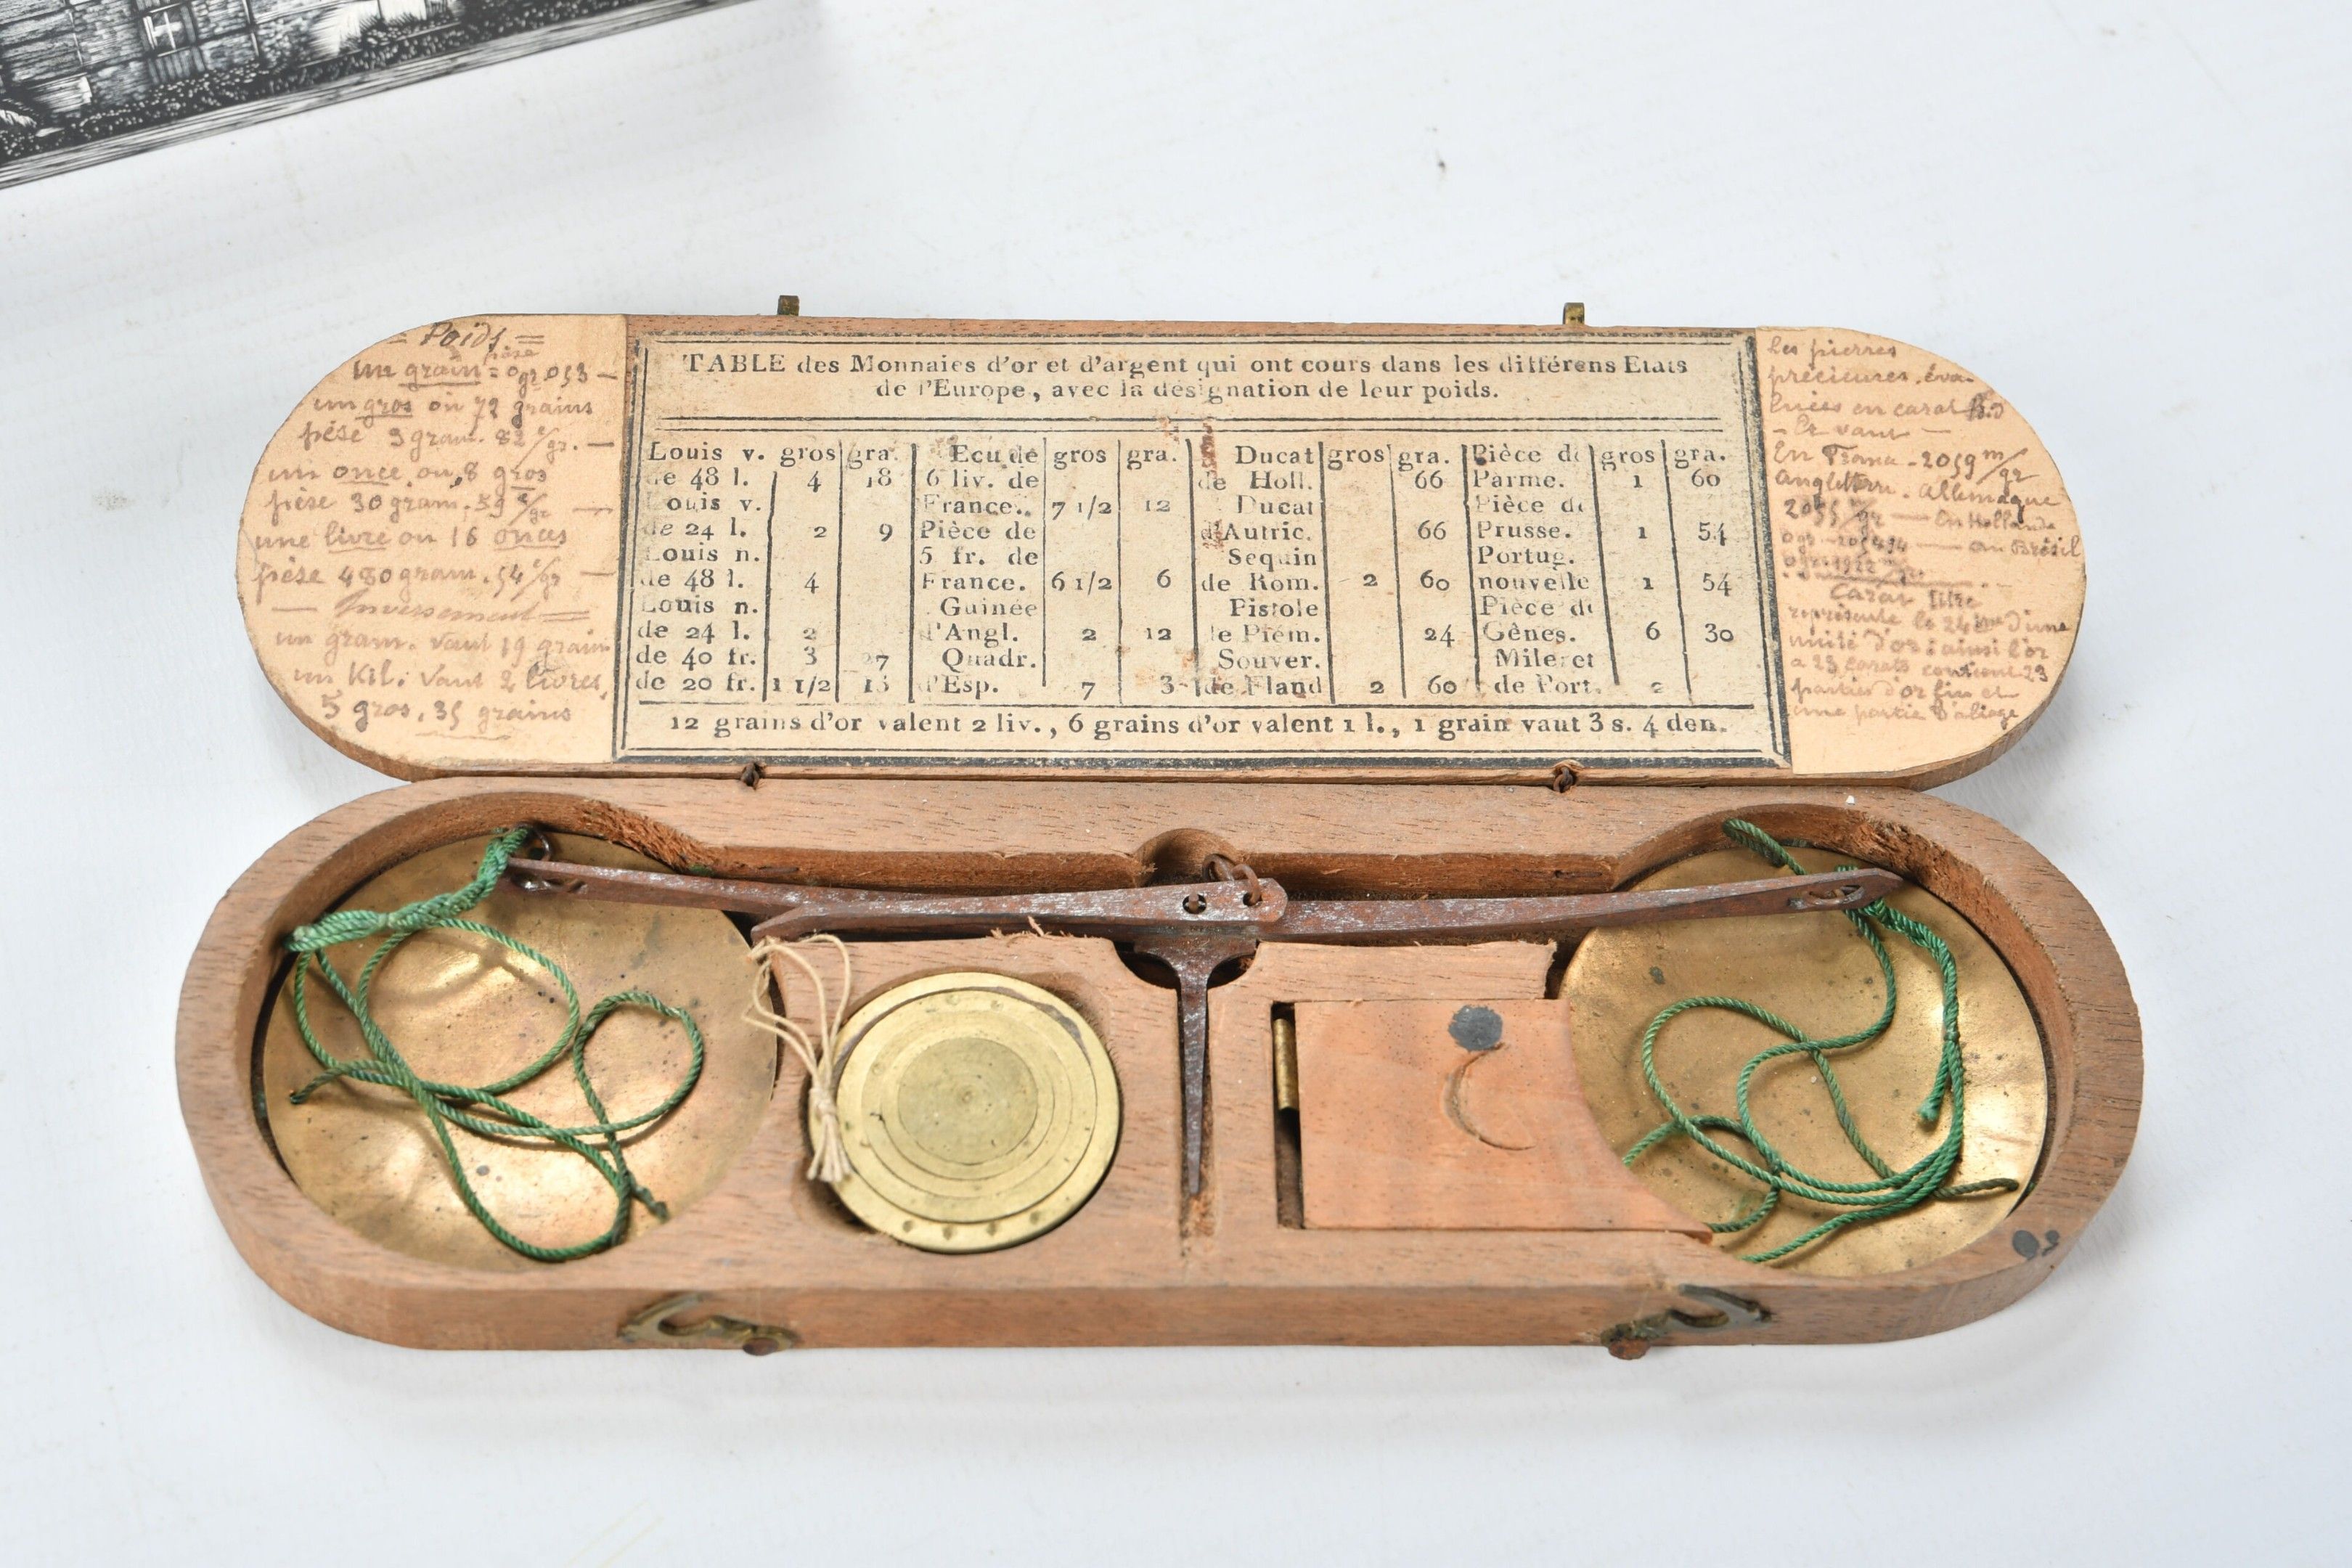 = Poids =
pèse
un grain = 0gr 053 —
un gros ou 72 grains
pèse 3 gram. 82 c/gr. —
un once ou 8 gros
pèse 30 gram. 59 c/gr —
une livre ou 16 onces
pèse 480 gram. 54 c/gr —
— Inversement =
un gram. vaut 19 grain
un Kil. vaut 2 livres,
5 gros, 35 grains
TABLE des Monnaies d'or et d'argent qui ont cours dans les différens Etats
de l'Europe, avec la désignation de leur poids.
Louis v. gros gra.
de 48 l. 4 18
Louis v.
de 24 l. 2 9
Louis n.
de 48 l. 4
Louis n.
de 24 l. 2
de 40 fr. 3 27
de 20 fr. 1 1/2 15
Ecu de gros gra.
6 liv. de
France.. 7 1/2 12
Pièce de
5 fr. de
France. 6 1/2 6
Guinée
d'Angl. 2 12
Quadr.
d'Esp. 7 3
Ducat gros gra.
de Holl. 66
Ducat
d'Autric. 66
Sequin
de Rom. 2 60
Pistole
de Piém. 24
Souver.
de Fland 2 60
Pièce de gros gra.
Parme. 1 60
Pièce de
Prusse. 1 54
Portug.
nouvelle 1 54
Pièce de
Gênes. 6 30
Mileret
de Port. 2
12 grains d'or valent 2 liv., 6 grains d'or valent 1 l., 1 grain vaut 3 s. 4 den.
Les pierres
précieuses, éva-
luées en carat
— Le vaut —
En — 2059 m/gr
Angleterre. Allemagne
2055 m/gr — En Hollande
0gr 205494 — au Brésil
0gr 1922
Carat titre
représente le 24ème d'une
unité d'or: ainsi l'or
a 23 carats contient 23
parties d'or fin et
une partie d'aliage